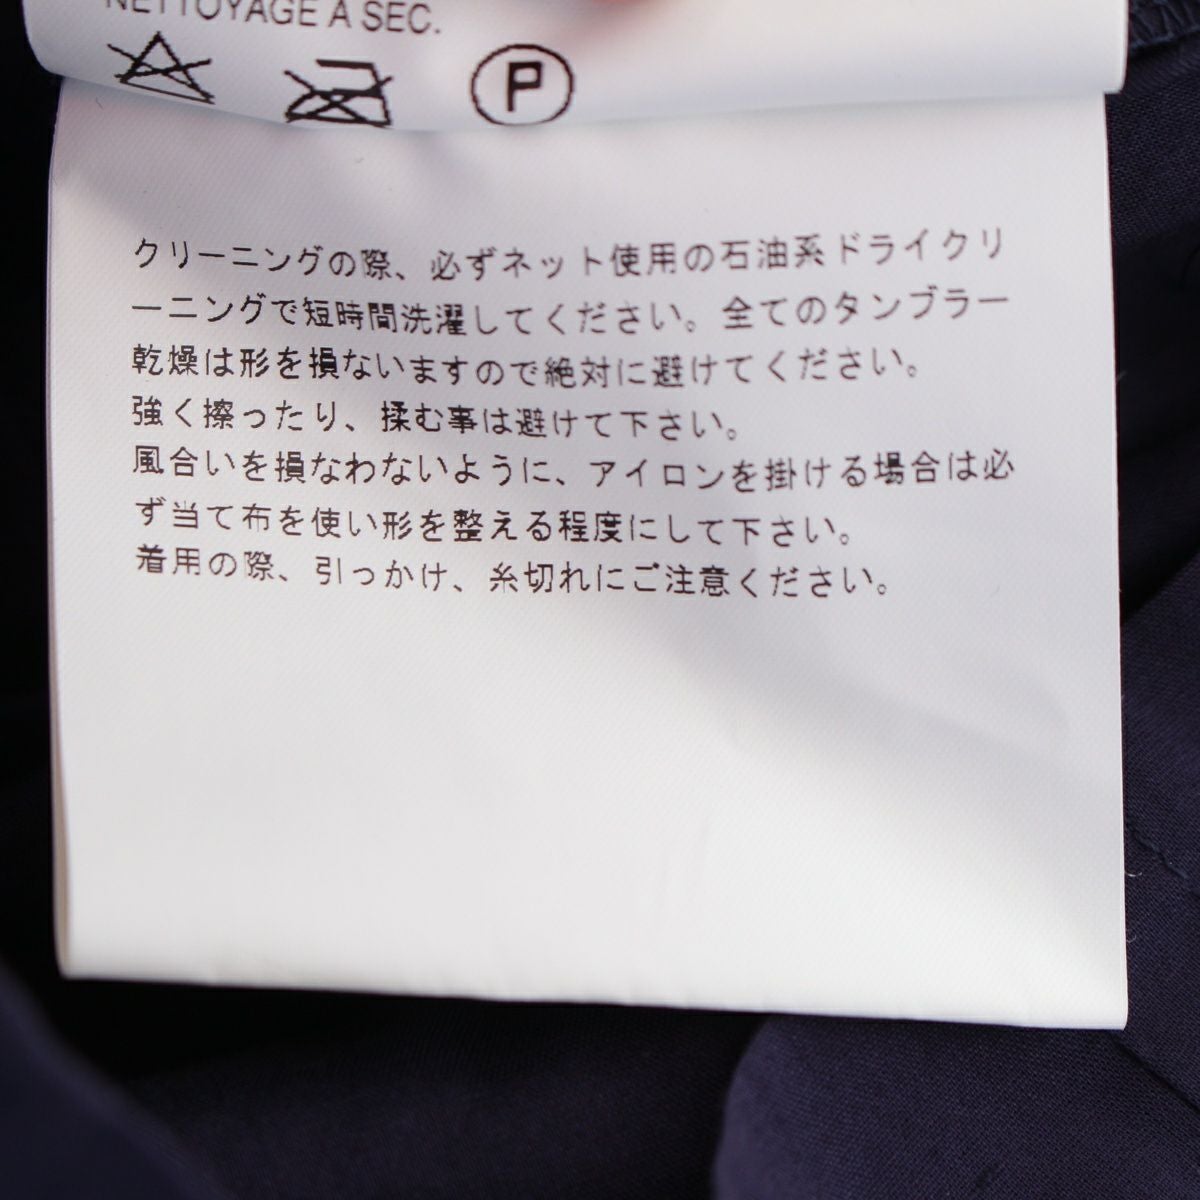 NETTOYAGE A SEC.
P
クリーニングの際、必ずネット使用の石油系ドライクリ
ーニングで短時間洗濯してください。全てのタンブラー
乾燥は形を損ないますので絶対に避けてください。
強く擦ったり、揉む事は避けて下さい。
風合いを損なわないように、アイロンを掛ける場合は必
ず当て布を使い形を整える程度にして下さい。
着用の際、引っかけ、糸切れにご注意ください。